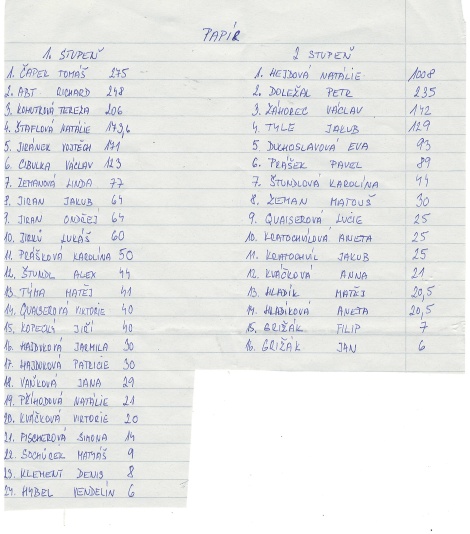 PAPÍR
1. STUPEŇ
1. ČAPEK TOMÁŠ 275
2. ABT RICHARD 248
3. KOHUTKOVÁ TEREZA 206
4. ŠTAFLOVÁ NATÁLIE 173,6
5. JIRÁNEK VOJTĚCH 141
6. CIBULKA VÁCLAV 123
7. ZEMANOVÁ LINDA 77
8. JIRAN JAKUB 64
9. JIRAN ONDŘEJ 64
10. JIRKŮ LUKÁŠ 60
11. PRÁŠKOVÁ KAROLÍNA 50
12. ŠTUNDL ALEX 44
13. TÝMA MATĚJ 41
14. QUAISEROVÁ VIKTORIE 40
15. KOPECKÝ JIŘÍ 40
16. HAJDUKOVÁ JARMILA 30
17. HAJDUKOVÁ PATRICIE 30
18. VAŇKOVÁ JANA 29
19. PŘÍHODOVÁ NATÁLIE 21
20. KVÁČKOVÁ VIKTORIE 20
21. PISCHEROVÁ SIMONA 14
22. SOCHŮREK MATYÁŠ 9
23. KLEMENT DENIS 8
24. HYBEL VENDELÍN 6
2 STUPEŇ
1. HEJDOVÁ NATÁLIE 1008
2. DOLEŽAL PETR 235
3. ZÁHOREC VÁCLAV 142
4. TYLE JAKUB 129
5. DUCHOSLAVOVÁ EVA 93
6. PRÁŠEK PAVEL 89
7. ŠTUNDLOVÁ KAROLÍNA 44
8. ZEMAN MATOUŠ 30
9. QUAISEROVÁ LUCIE 25
10. KRATOCHVÍLOVÁ ANETA 25
11. KRATOCHVÍL JAKUB 25
12. KVÁČKOVÁ ANNA 21
13. HLADÍK MATĚJ 20,5
14. HLADÍKOVÁ ANETA 20,5
15. GRIŽÁK FILIP 7
16. GRIŽÁK JAN 6